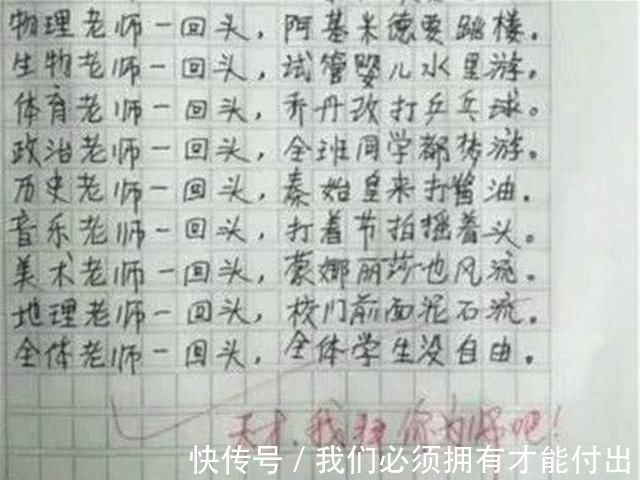 物理老师一回头，阿基米德要跳楼。
生物老师一回头，试管婴儿水里游。
体育老师一回头，乔丹改打乒乓球。
政治老师一回头，全班同学都梦游。
历史老师一回头，秦始皇来打酱油。
音乐老师一回头，打着节拍摇着头。
美术老师一回头，蒙娜丽莎也风流。
地理老师一回头，校门前面泥石流。
全体老师一回头，全体学生没自由。
天才，我拜你为师吧！
快传号 / 我们必须拥有才能付出